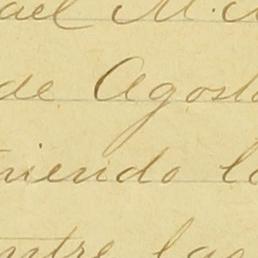 ael M.
de Agosto
niendo l
ntre las